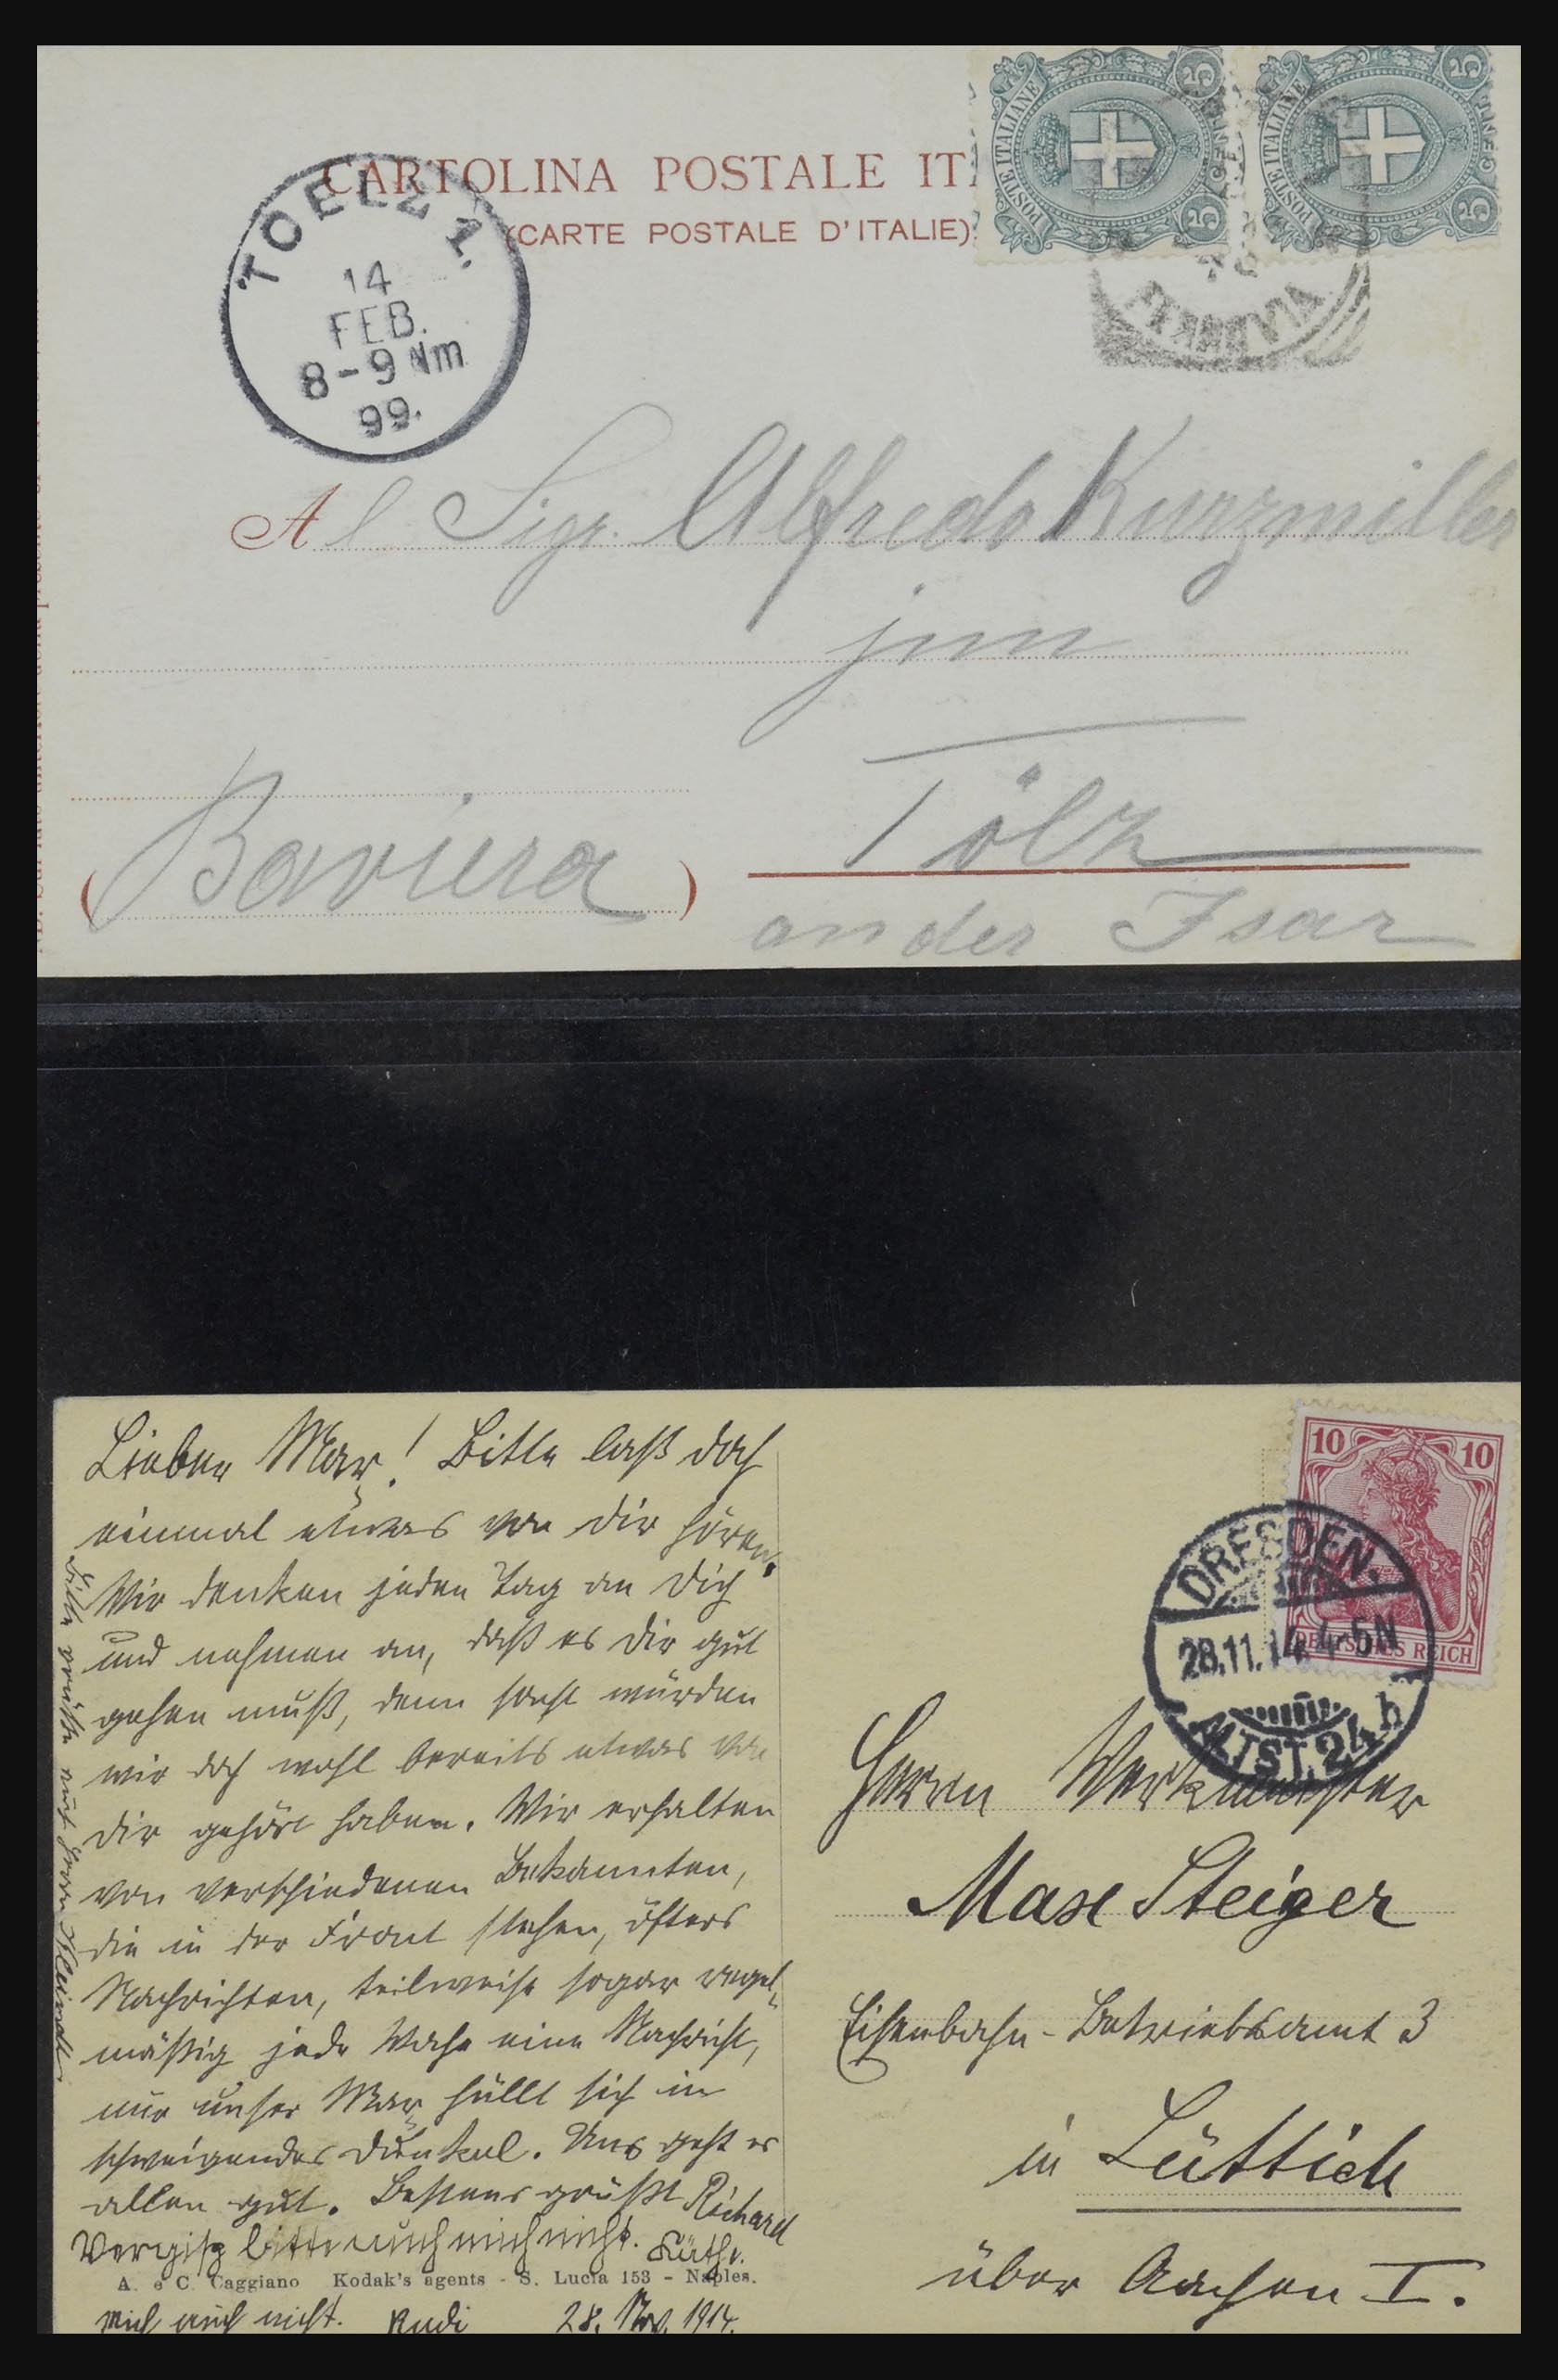 CARTOLINA POSTALE IT
(CARTE POSTALE D'ITALIE)
TOELZ 1.
14
FEB.
8-9 Nm
99.
POSTE ITALIANE
5 CENT. 5
POSTE ITALIANE
5 CENT. 5
FERROVIA
Al Sigr. Alfredo Kurzmiller
jun
Tölz
(Baviera)
an der Isar
Lieber Max! Bitte laß doch
einmal etwas von Dir hören.
Wir denken jeden Tag an Dich
und nehmen an, daß es Dir gut
gehen muß, denn sonst würden
wir doch wohl bereits etwas von
Dir gehört haben. Wir erhalten
von verschiedenen Bekannten,
die in der Front stehen, öfters
Nachrichten, teilweise sogar regel-
mäßig jede Woche eine Nachricht,
nur unser Max hüllt sich in
schweigendes Dunkel. Uns geht es
allen gut. Bestens grüßt Richard
Vergiß bitte auch mich nicht. Käthe.
A. e C. Caggiano Kodak's agents - S. Lucia 153 - Naples.
Mich auch nicht. Rudi 28. Nov. 1914.
Bitte grüße auch Herrn
10 10
DEUTSCHES REICH
DRESDEN.
28.11.14. 4-5N
ALTST. 24 h
Herrn Werkmeister
Max Steiger
Eisenbahn-Betriebsamt 3
in Lüttich
über Aachen I.